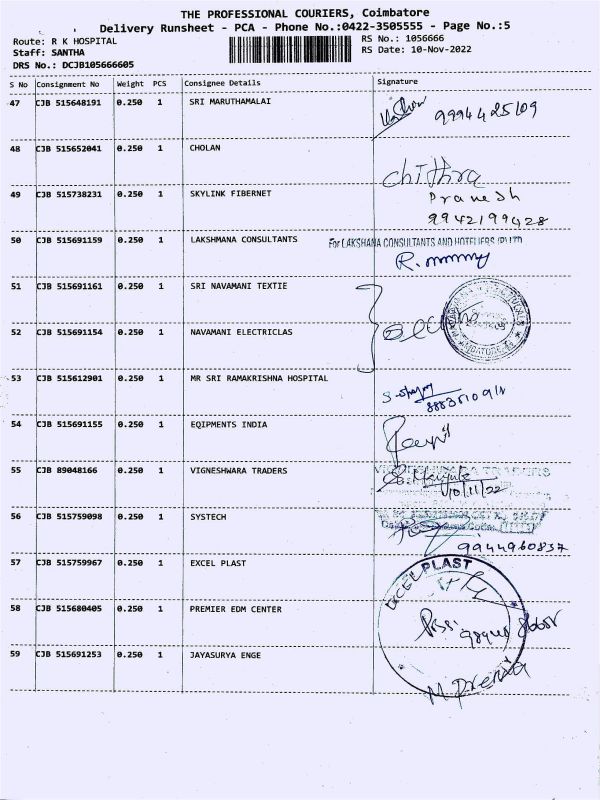 THE PROFESSIONAL COURIERS, Coimbatore
Delivery Runsheet - PCA - Phone No.:0422-3505555 - Page No.:5
Route: R K HOSPITAL
RS No.: 1056666
Staff: SANTHA
RS Date: 10-Nov-2022
DRS No.: DCJB105666605
S No Consignment No Weight PCS Consignee Details Signature
47 CJB 515648191 0.250 1 SRI MARUTHAMALAI
9994425109
48 CJB 515652041 0.250 1 CHOLAN
Chithra
49 CJB 515738231 0.250 1 SKYLINK FIBERNET
Pranesh
9942199428
50 CJB 515691159 0.250 1 LAKSHMANA CONSULTANTS
For LAKSHANA CONSULTANTS AND HOTELIERS (P) LTD
51 CJB 515691161 0.250 1 SRI NAVAMANI TEXTIE
52 CJB 515691154 0.250 1 NAVAMANI ELECTRICLAS
53 CJB 515612901 0.250 1 MR SRI RAMAKRISHNA HOSPITAL
54 CJB 515691155 0.250 1 EQIPMENTS INDIA
55 CJB 89048166 0.250 1 VIGNESHWARA TRADERS
10/11/22
56 CJB 515759098 0.250 1 SYSTECH
9944960837
57 CJB 515759967 0.250 1 EXCEL PLAST
EXCEL PLAST
58 CJB 515680405 0.250 1 PREMIER EDM CENTER
59 CJB 515691253 0.250 1 JAYASURYA ENGE